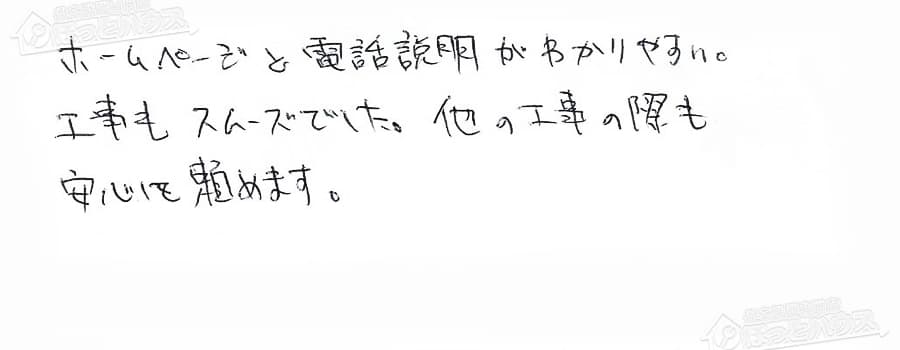 ホームページと電話説明がわかりやすい。
工事もスムーズでした。他の工事の際も
安心して頼めます。